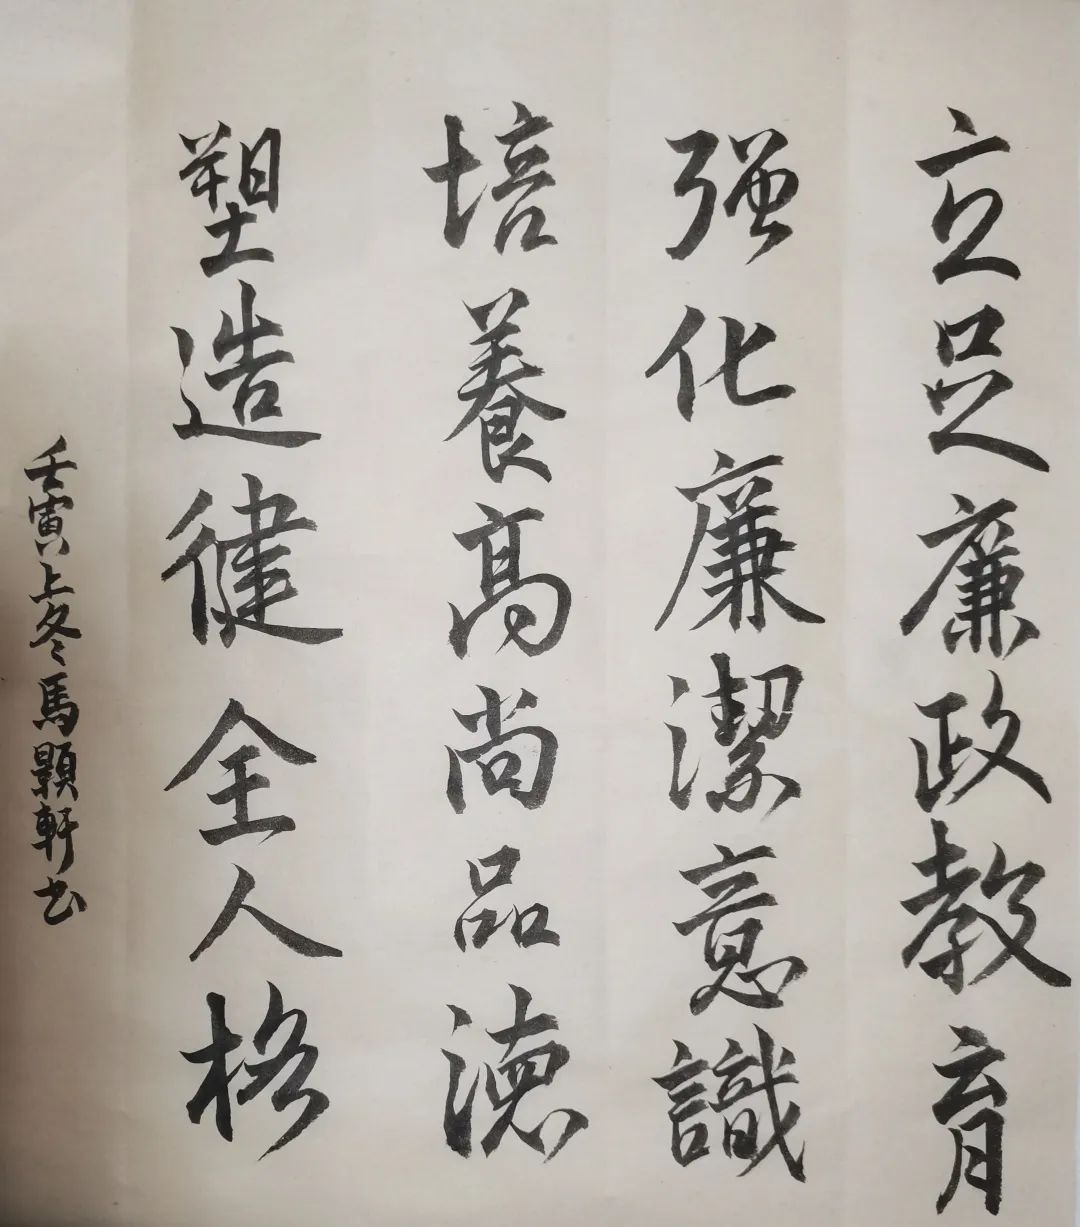 立足廉政教育
强化廉潔意識
培養高尚品德
塑造健全人格
壬寅上冬馬顥軒书